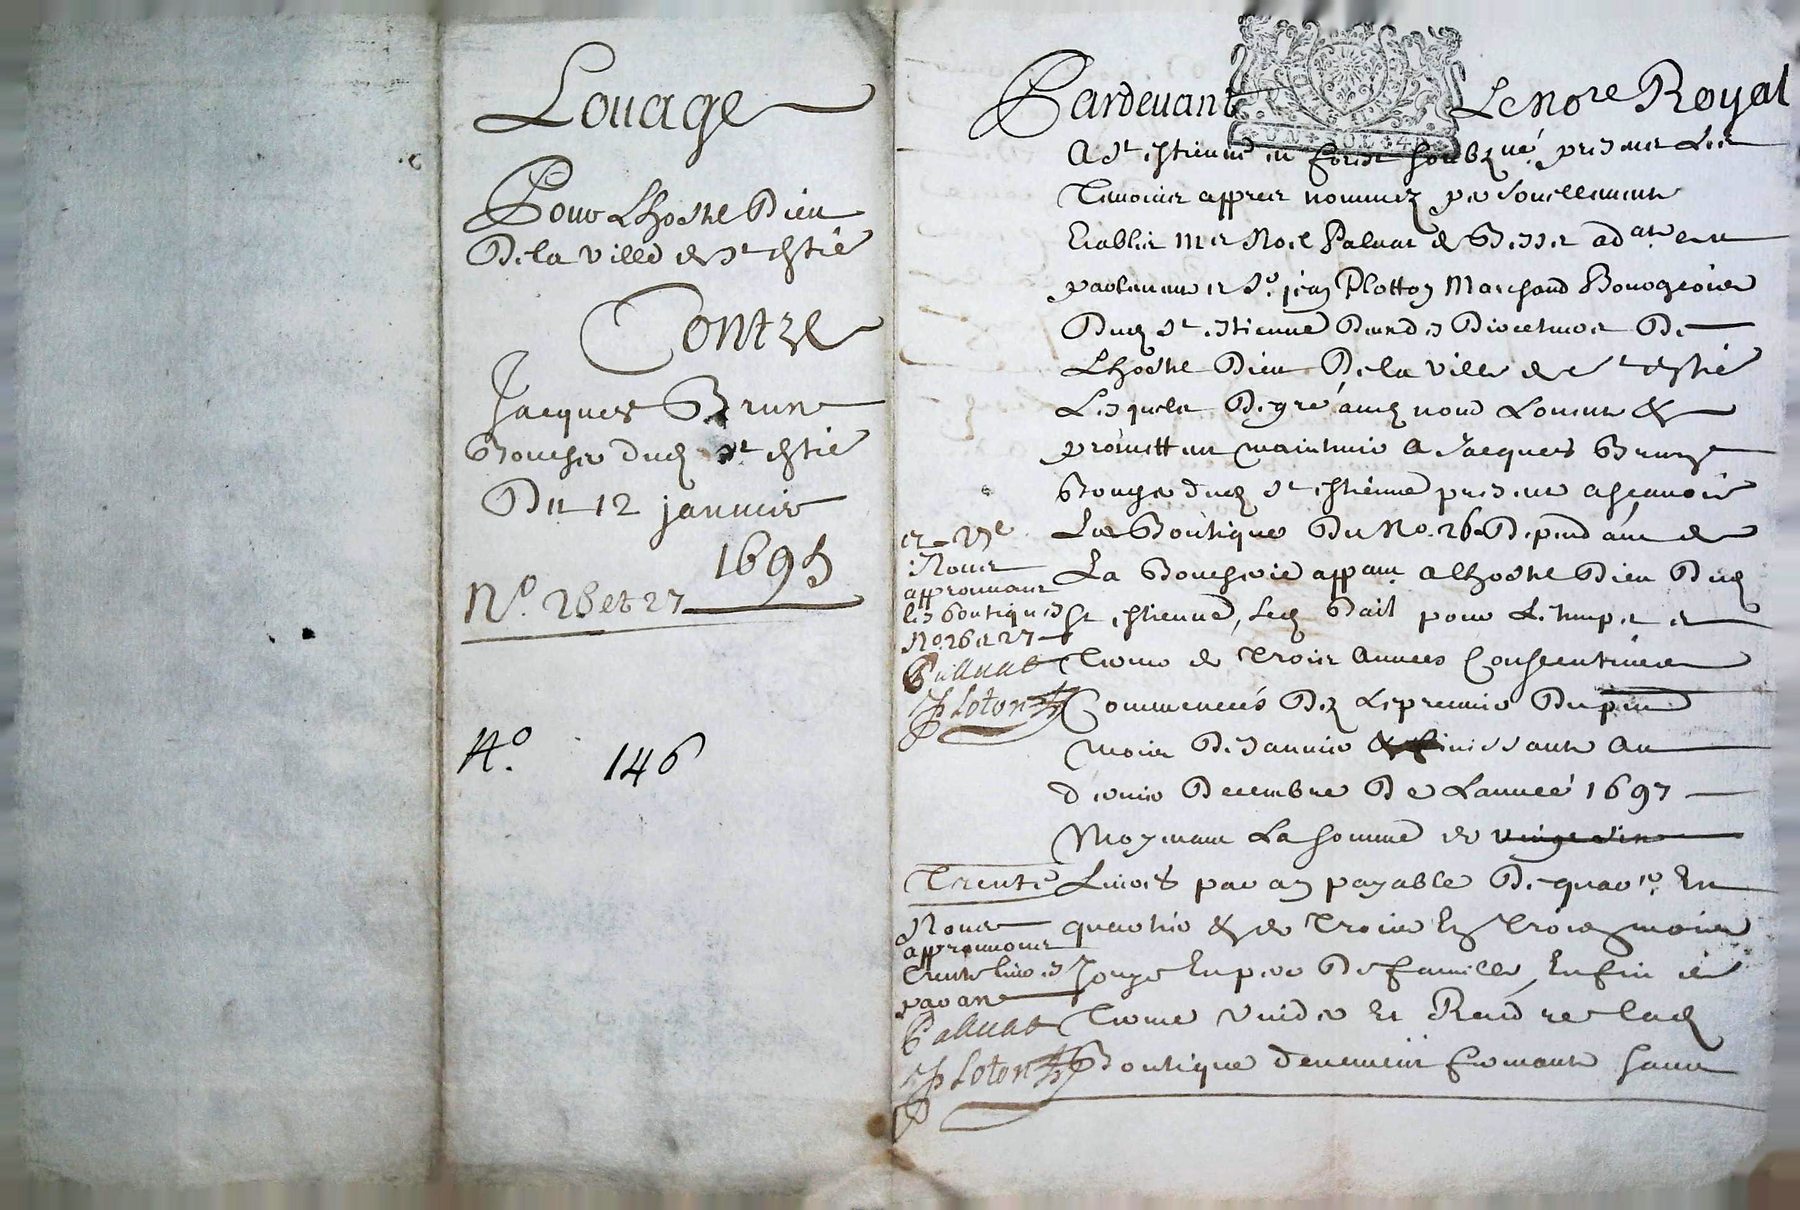 Louage
Pour Lhostel Dieu
De la ville de st estie
Contre
Jacques Brun
Boucher dud st estie
Du 12 janvier
1695
No. 26 et 27
No. 146
Pardevant Le nore Royal
UN SOL 4 D
A st estienne en forest soubzné present Les
Temoins appres nommez personellement
Establis Mes Noel Paluat de Besset adat en
parlement et sr. jean Plotton Marchand Bourgeois
Dud st estienne Recteurs De
Lhostel Dieu De la ville de st estie
Lesquels De gré aud nom Louent &
promettent maintenir A Jacques Brun
Boucher dud st estienne present a scavoir
La Boutique Du No. 26 Dependant de
La Boucherie appant a lhostel Dieu Dud
st estienne, Led Bail pour Le temps et
Terme de Trois Annees Consecutives
Commencés Dez Le premier Du pnt
mois De Janvier & finissant Au
dernier Decembre De Lannee 1697
Moyenant La somme de vingt
Livres par an payable De quartier En
quartier & de Trois En Trois mois
Jouyr En pere De famille, En fin du
Terme Vuider Et Rendre lad
Boutique deuement fermant sans
et 27e
Nous
approuvons
les boutiques
No. 26 et 27
Palluat
J Ploton
Trente
Nous
approuvons
trente livres
par an
Palluat
J Ploton